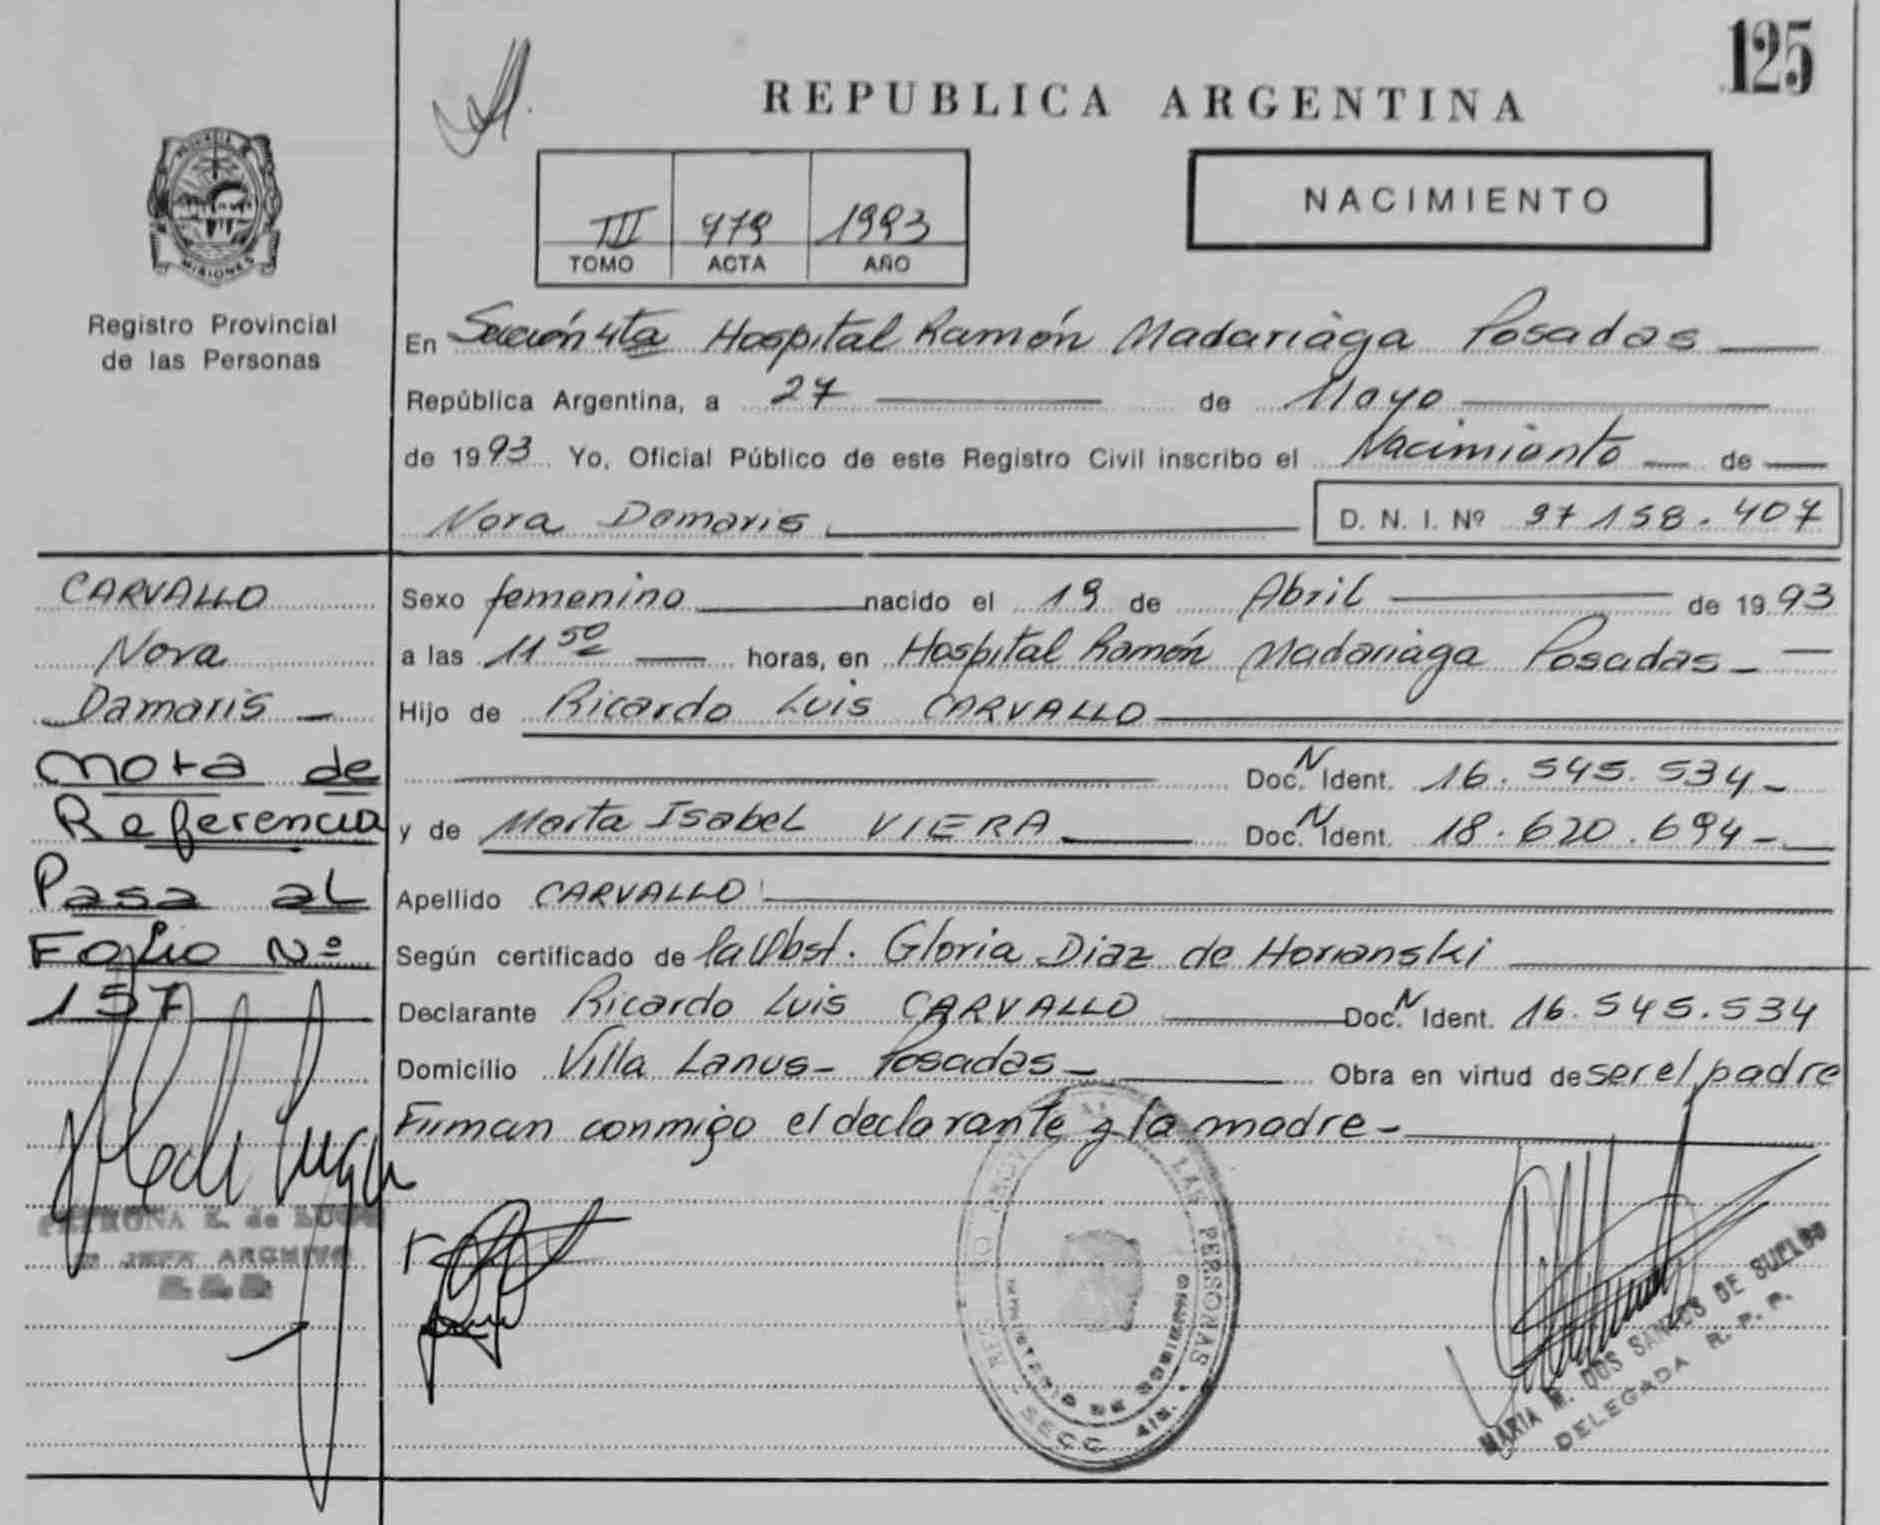 125
REPUBLICA ARGENTINA
NACIMIENTO
III 479 1993
TOMO ACTA AÑO
PROVINCIA DE MISIONES
Registro Provincial
de las Personas
En Sección 4ta Hospital Ramón Madariaga Posadas
República Argentina, a 27 de Mayo
de 1993 Yo, Oficial Público de este Registro Civil inscribo el Nacimiento de
Nora Damaris D. N. I. Nº 37 158.407
CARVALLO
Nora
Damaris
Nota de
Referencia
Pasa al
Folio Nº
157
Sexo femenino nacido el 19 de Abril de 1993
a las 11 50 horas, en Hospital Ramón Madariaga Posadas
Hijo de Ricardo Luis CARVALLO
Doc. N Ident. 16.545.534
y de Marta Isabel VIERA Doc. N Ident. 18.620.694
Apellido CARVALLO
Según certificado de la Obst. Gloria Diaz de Horianski
Declarante Ricardo Luis CARVALLO Doc. N Ident. 16.545.534
Domicilio Villa Lanus - Posadas Obra en virtud de ser el padre
Firman conmigo el declarante y la madre
PETRONA E. de LUGO
JEFA ARCHIVO
LAS PERSONAS
MINISTERIO DE GOBIERNO
SECC 4ta.
MARIA M. DOS SANTOS DE SUELDO
DELEGADA R. P. P.